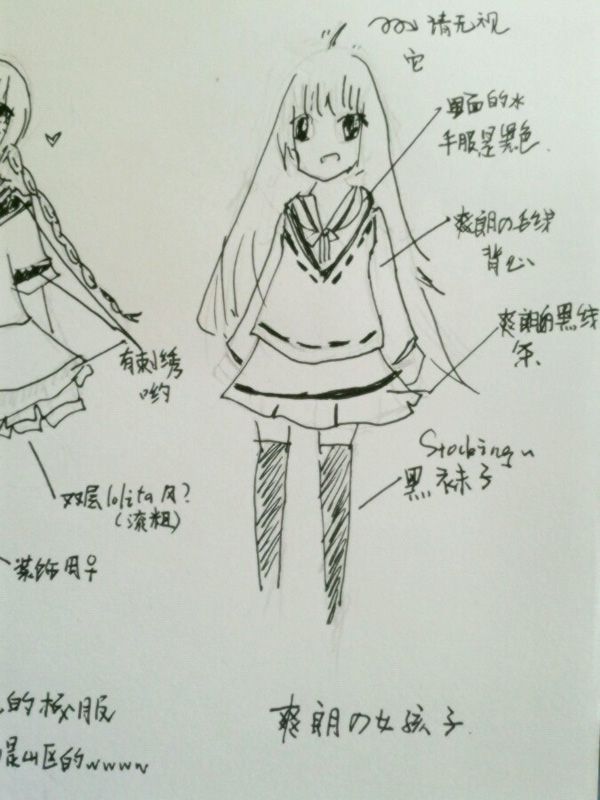 请无视
它
里面的水
手服是黑色.
爽朗の毛线
背心
爽朗的黑线
条.
Stocking~
黑袜子
有刺绣
哟
双层lolita风?
(流粗)
装饰用
的校服
是山区的wwww
爽朗の女孩子.